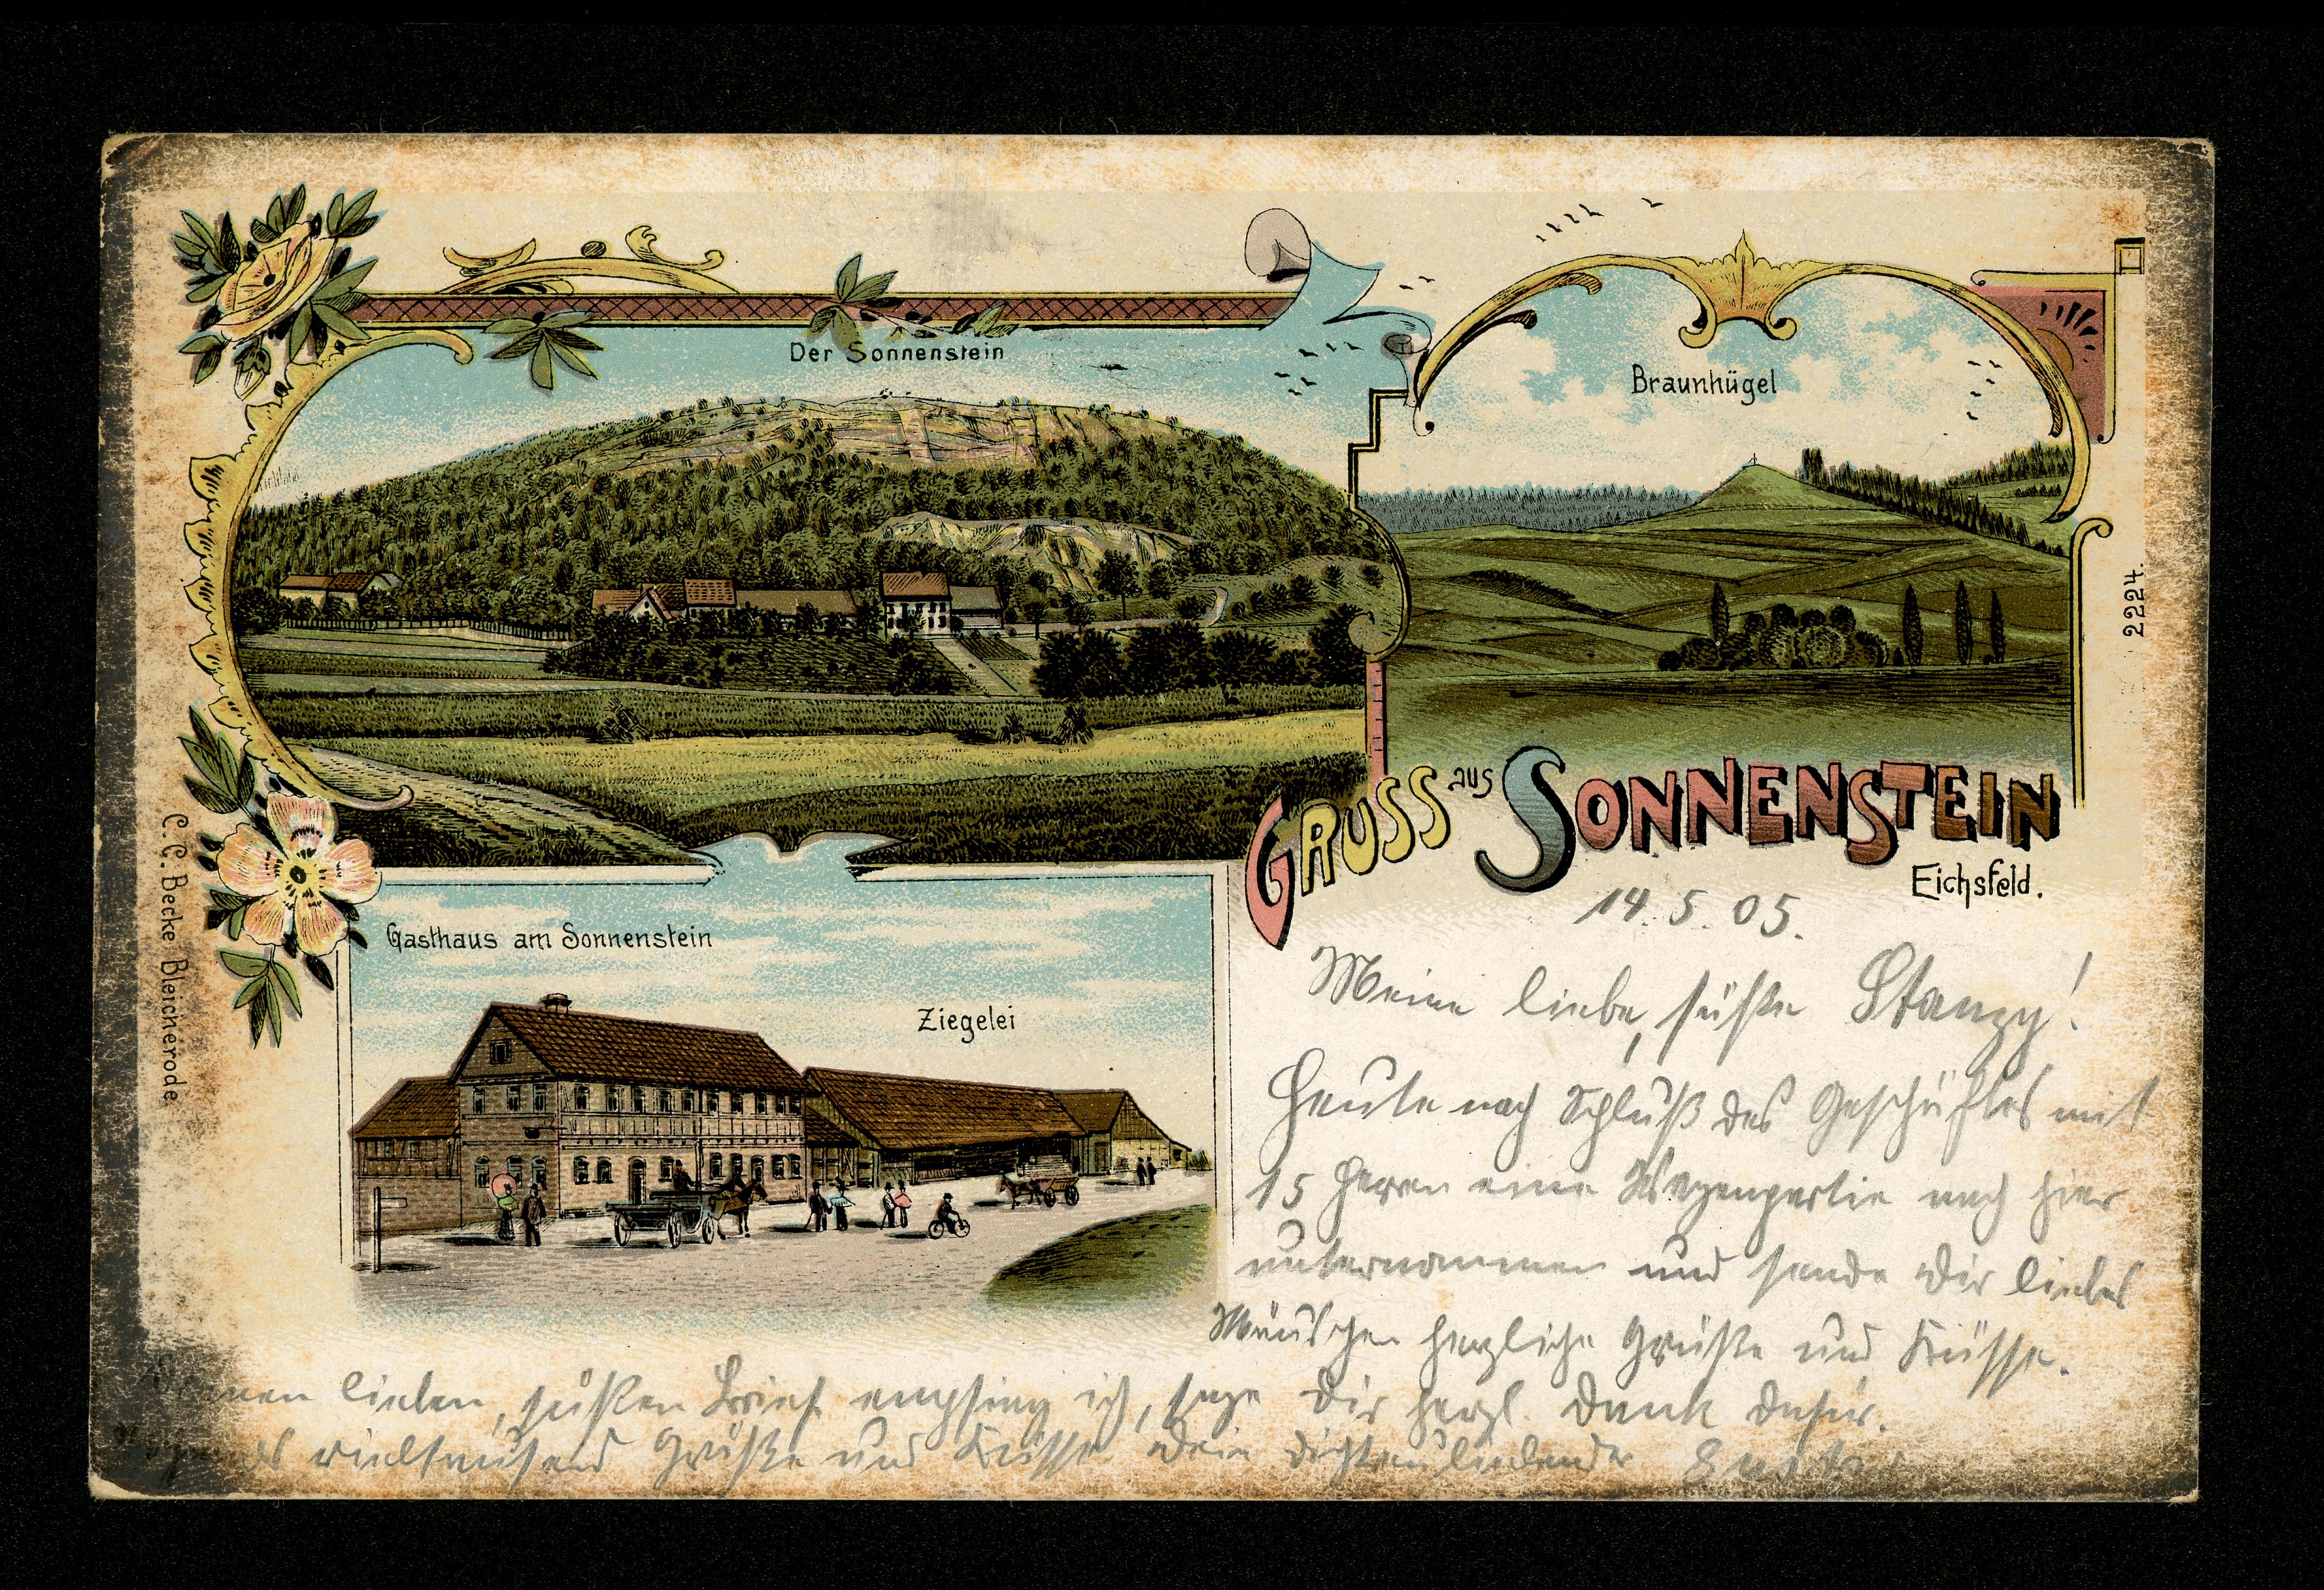 Der Sonnenstein
Braunhügel
2224.
GRUSS aus SONNENSTEIN
Eichsfeld.
Gasthaus am Sonnenstein
Ziegelei
C. C. Becke Bleicherode
14. 5. 05.
Meine liebe, süße Stanzy!
Heute nach Schluß des Geschäftes mit
15 Herren eine Wagenpartie nach hier
unternommen und sende Dir liebes
Mäuschen herzliche Grüße und Küsse.
lieben, süßen Brief empfing ich, sage Dir herzl. Dank dafür.
vieltausend Grüße und Küsse Dein Dichtreuliebender